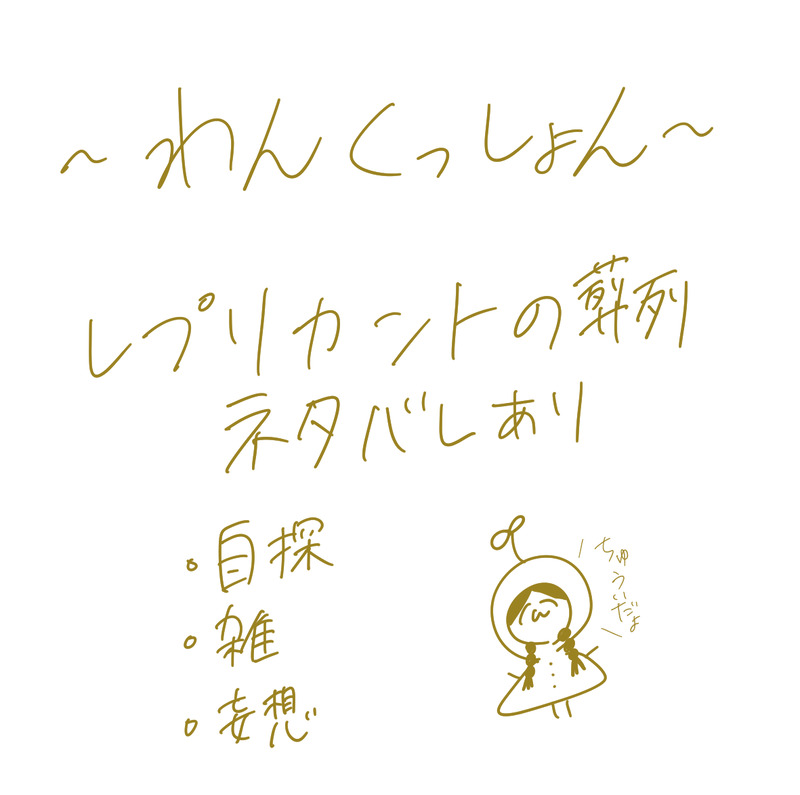 ～わんくっしょん～
レプリカントの葬列
ネタバレあり
。自探
。雑
。妄想
ちゅ
うい
だよ